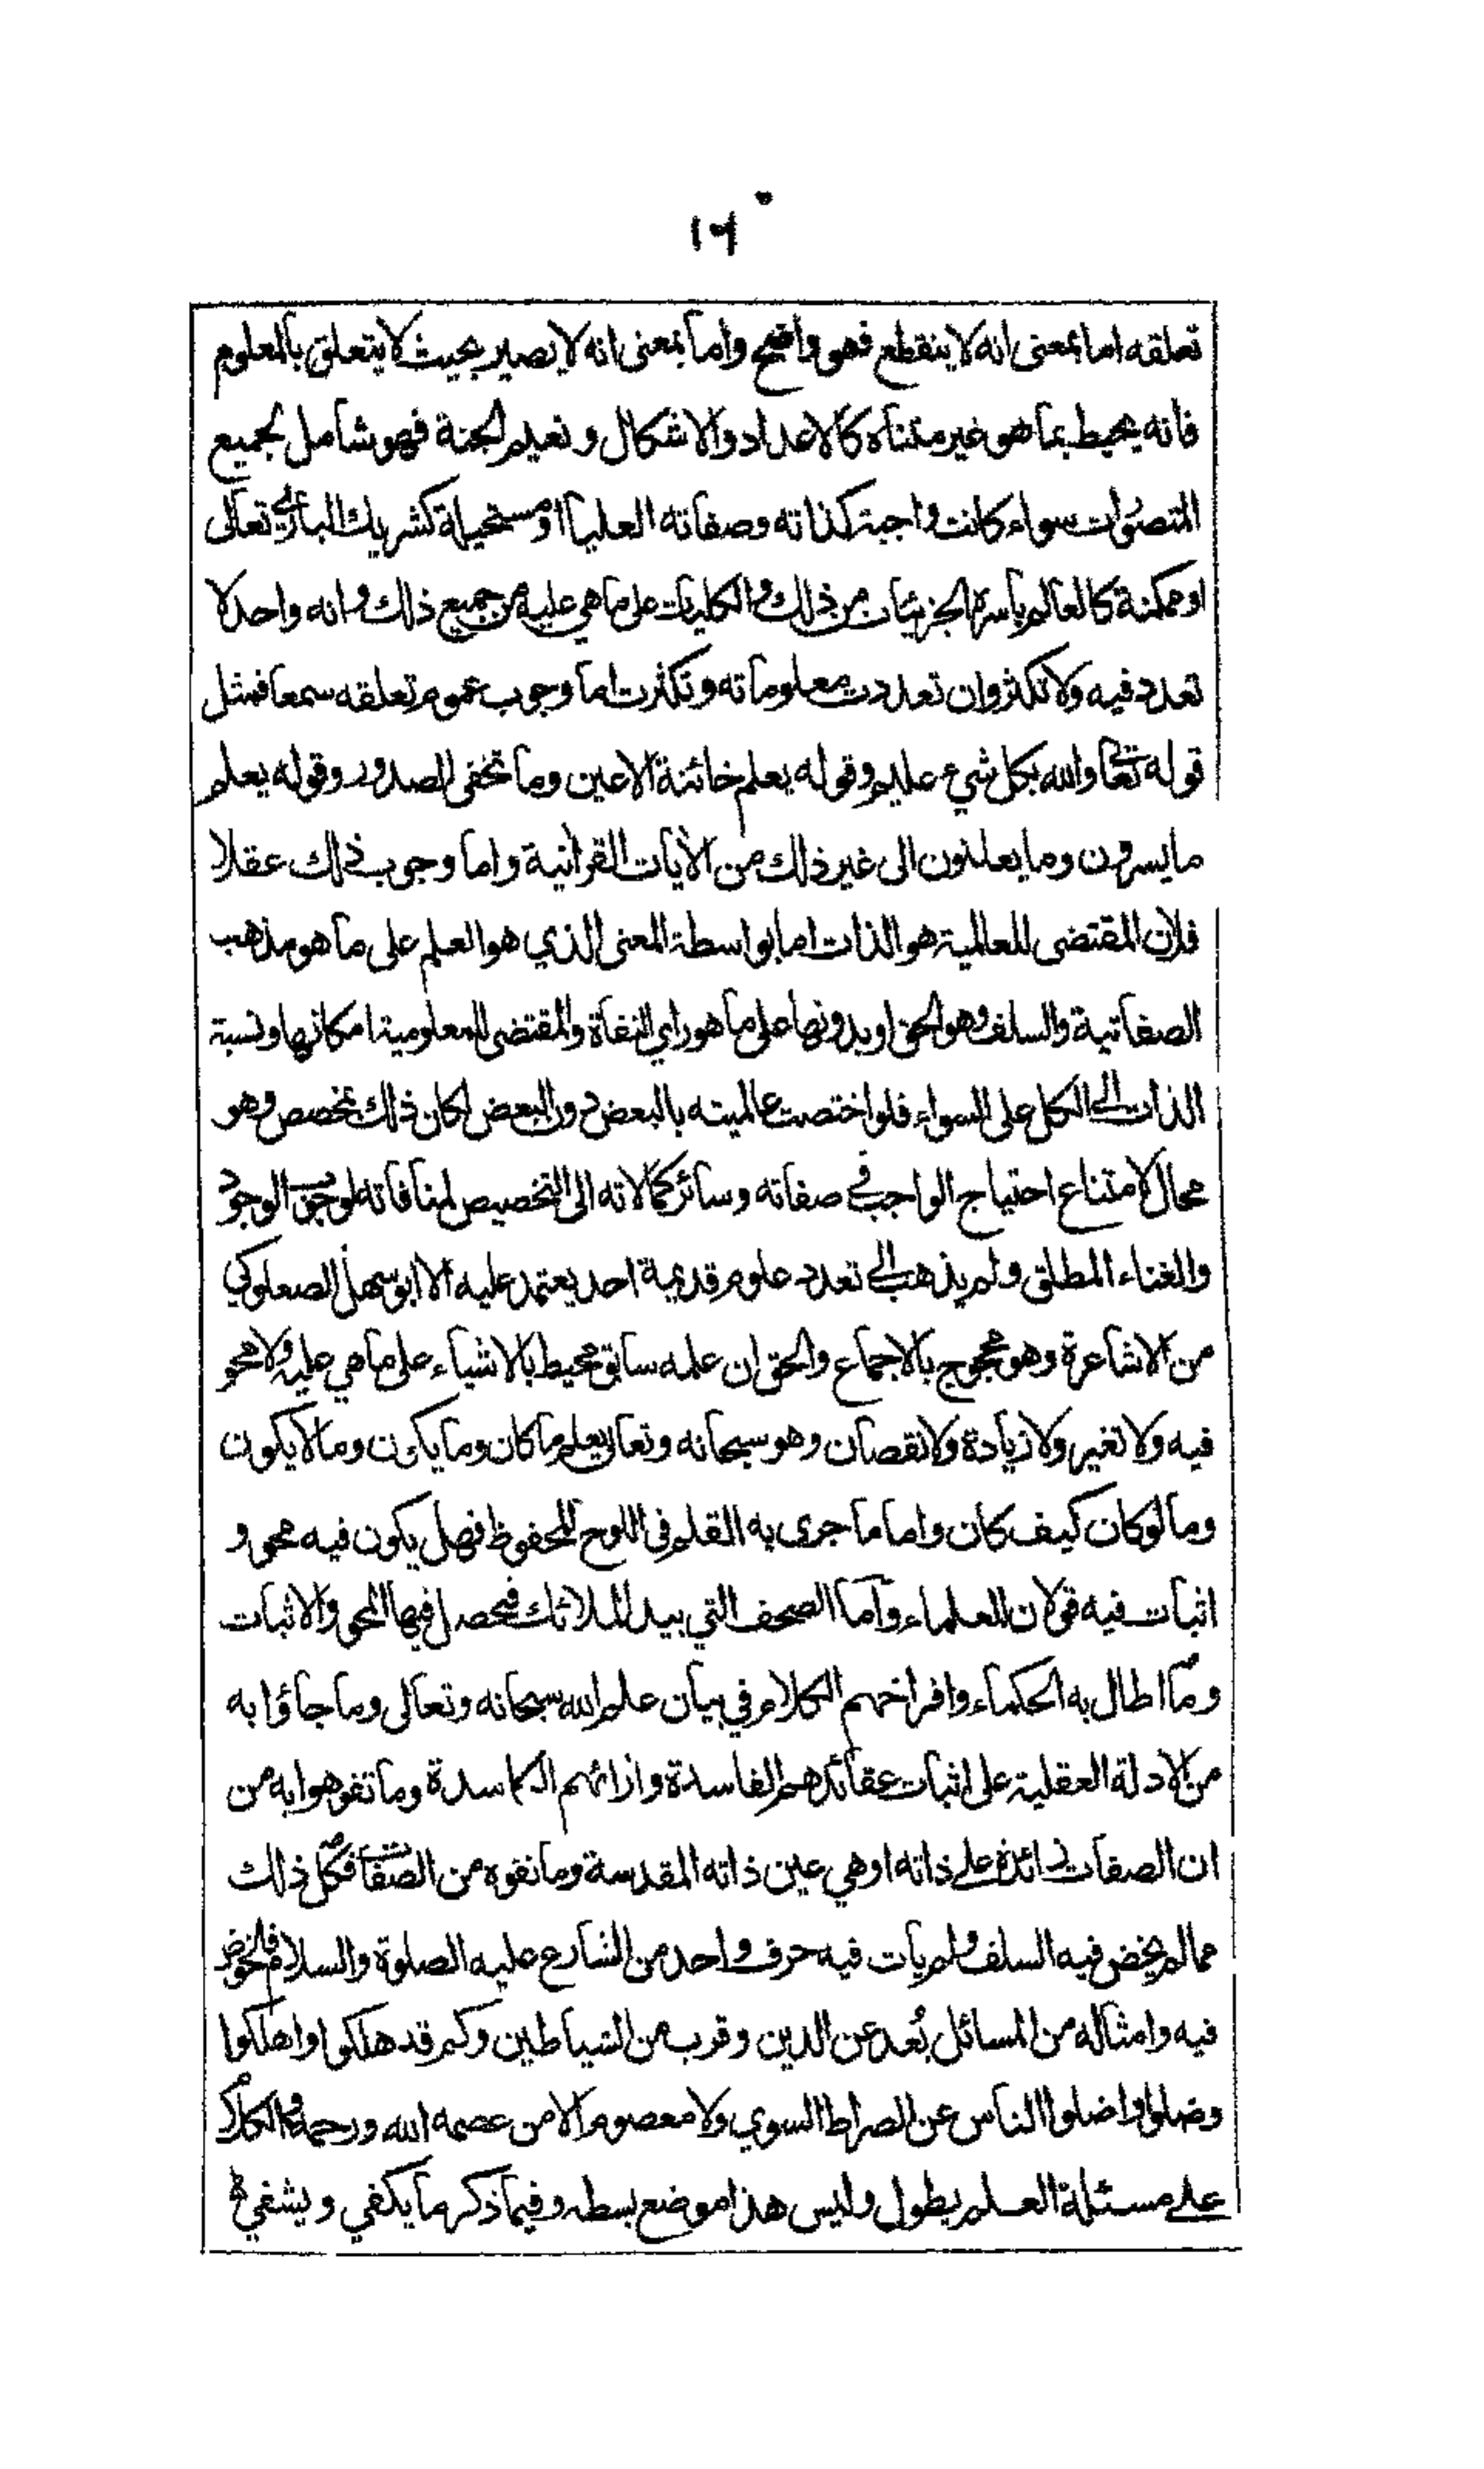 ١٦
تعلقه اما بمعنى انه لا ينقطع فهو واضح واما بمعنى انه لا يصير بحيث لا يتعلق بالمعلوم
فانه يحيط بما هو غير متناه كالاعداد والاشكال ونعيم الجنة فهو شامل لجميع
المتصورات سواء كانت واجبة كذاته وصفاته العليا او مستحيلة كشريك الباري تعالى
او ممكنة كالعالم باسره الجزئيات من ذلك والكليات على ما هي عليه من جميع ذلك وانه واحد لا
تعدد فيه ولا تكثر وان تعددت معلوماته وتكثرت اما وجوب عموم تعلقه سمعا فمثل
قوله تعالى والله بكل شيء عليم وقوله يعلم خائنة الاعين وما تخفى الصدور وقوله يعلم
ما يسرون وما يعلنون الى غير ذلك من الآيات القرآنية واما وجوب ذلك عقلا
فلان المقتضى للعالمية هو الذات اما بواسطة المعنى الذي هو العلم على ما هو مذهب
الصفاتية والسلف وهو الحق او بدونها على ما هو راي النفاة والمقتضى للمعلومية امكانها ونسبة
الذات الى الكل على السواء فلو اختصت عالميته بالبعض دون البعض لكان ذلك بمخصص وهو
محال لامتناع احتياج الواجب في صفاته وسائر كمالاته الى التخصيص لمنافاته لوجوب الوجود
والغناء المطلق ولم يذهب الى تعدد علوم قديمة احد يعتمد عليه الا ابو سهل الصعلوكي
من الاشاعرة وهو محجوج بالاجماع والحق ان علمه سابق محيط بالاشياء على ما هي عليه ولا محو
فيه ولا تغير ولا زيادة ولا نقصان وهو سبحانه وتعالى يعلم ما كان وما يكون وما لا يكون
وما لو كان كيف كان واما ما جرى به القلم في اللوح المحفوظ فهل يكون فيه محو و
اثبات فيه قولان للعلماء واما الصحف التي بيد الملائك فيحصل فيها المحو والاثبات
وما اطال به الحكماء وافراخهم الكلام في بيان علم الله سبحانه وتعالى وما جاؤا به
من الادلة العقلية على اثبات عقائدهم الفاسدة وارائهم الكاسدة وما تفوهوا به من
ان الصفات زائدة على ذاته او هي عين ذاته المقدسة وما نفوه من الصفات فكل ذلك
مما لم يخض فيه السلف ولم يات فيه حرف واحد من الشارع عليه الصلوة والسلام فالخوض
فيه وامثاله من المسائل بُعد عن الدين وقرب من الشياطين وكم قد هلكوا واهلكوا
وضلوا واضلوا الناس عن الصراط السوي ولا معصوم الا من عصمه الله ورحمه والكلام
على مسئلة العلم يطول وليس هذا موضع بسطه وفيما ذكر ما يكفي ويشفي